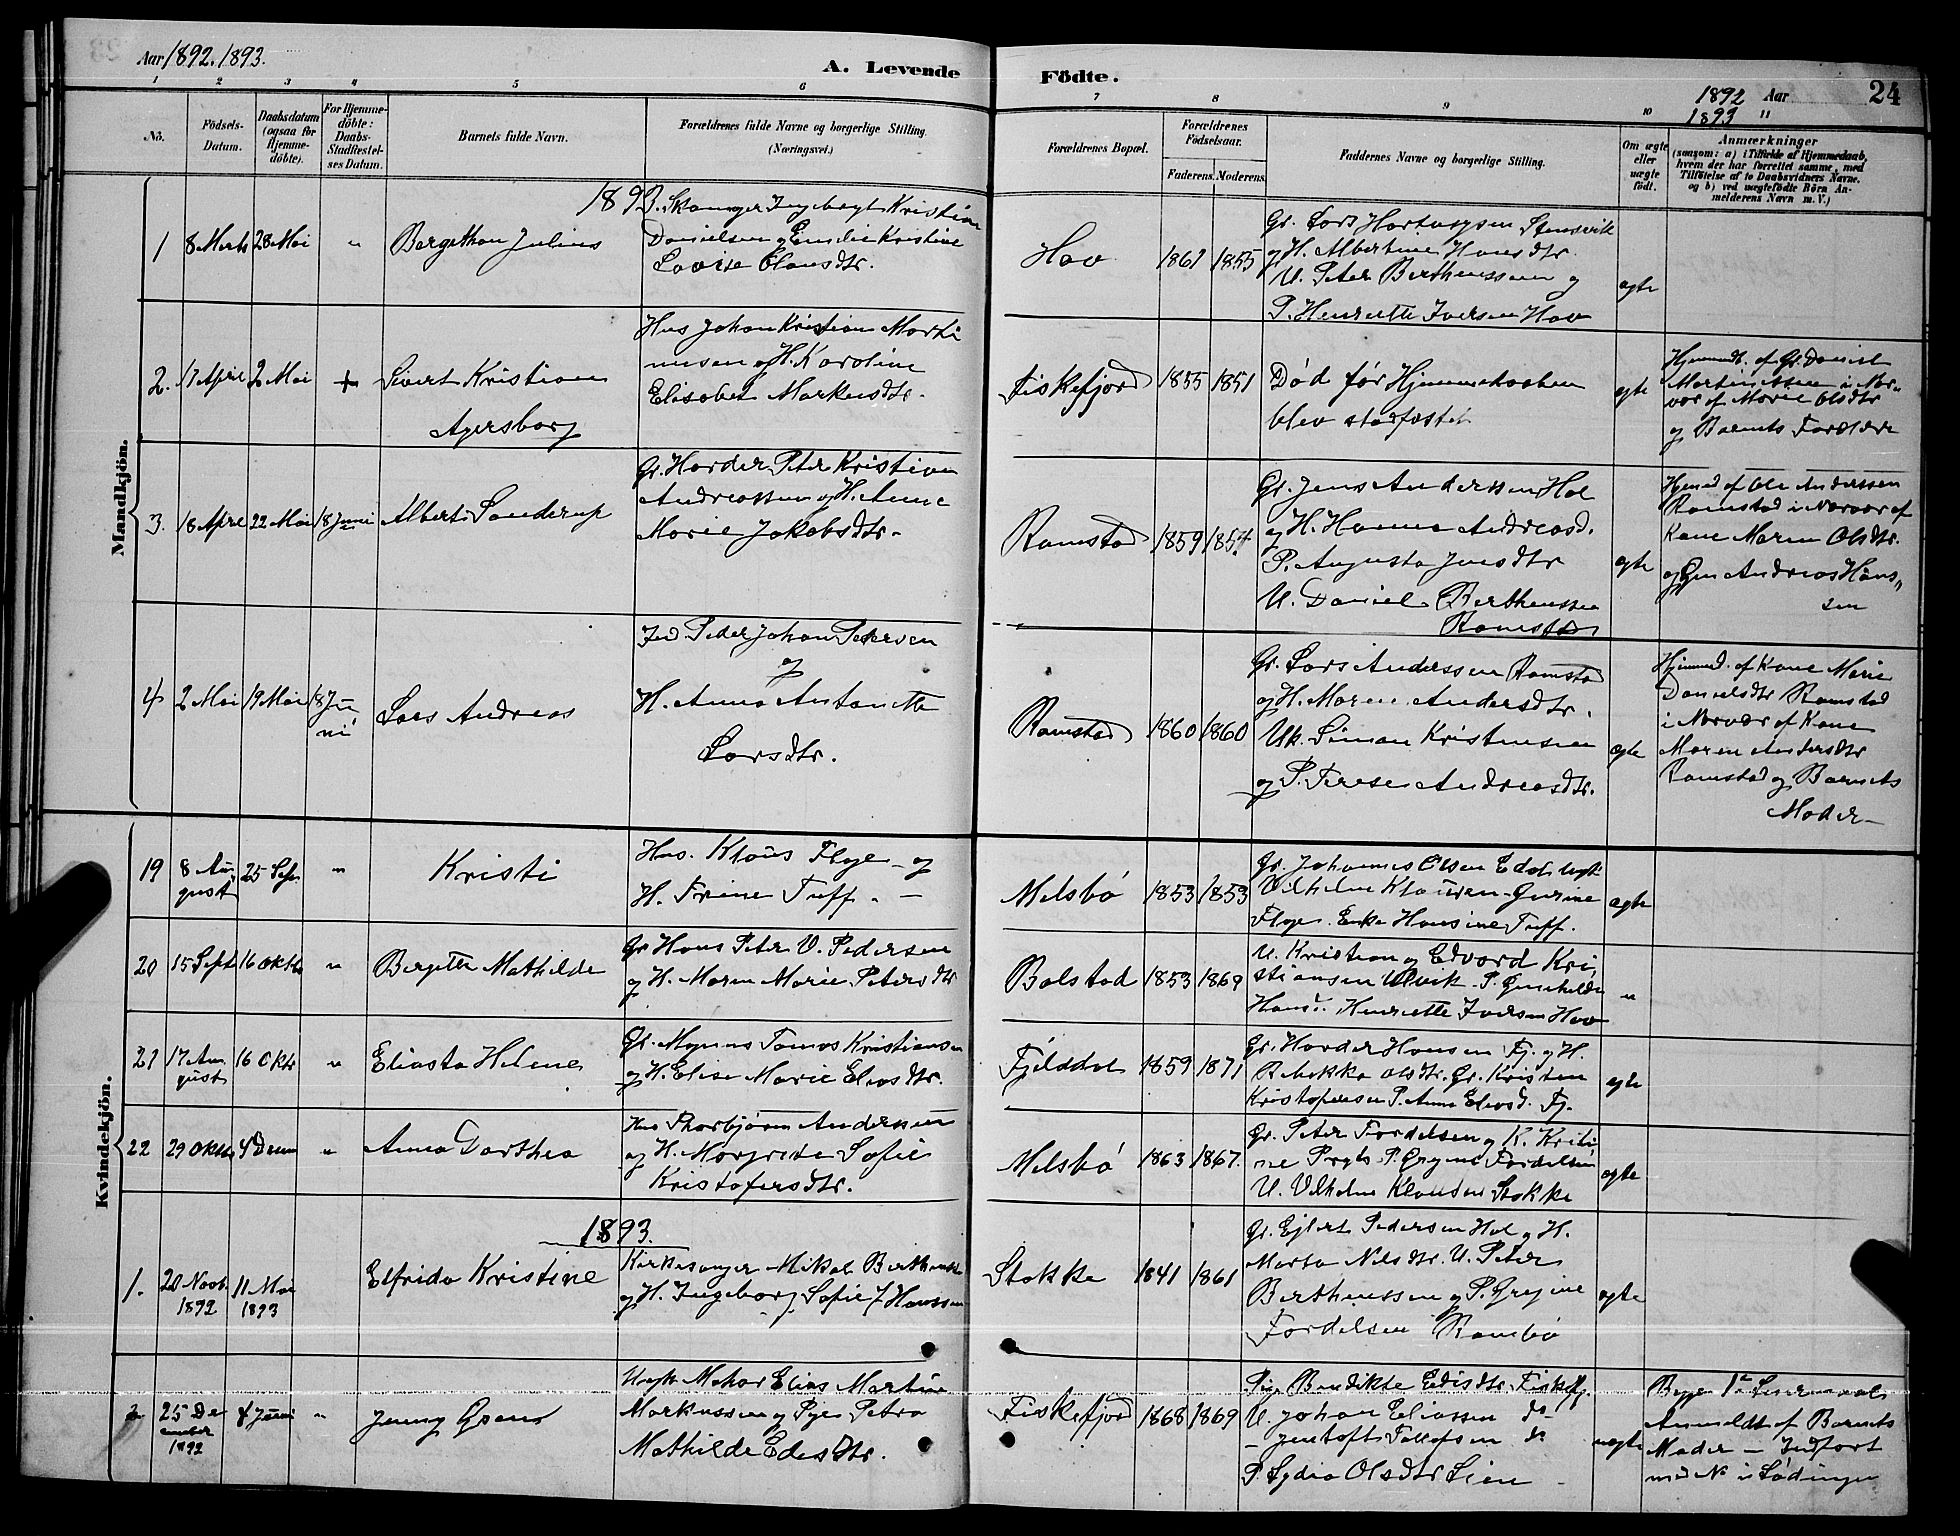 Aar 1892. 1893.
A. Levende Födte.
1892 Aar 24
1893 "
1 2 3 4 5 6 7 8 9 10
No.
Födsels-Datum.
Daabsdatum (ogsaa for Hjemmedöbte).
For Hjemmedöbte: Daabs-Stadfæstelses Datum.
Barnets fulde Navn.
Forældrenes fulde Navne og borgerlige Stilling.
(Næringsvei.)
Forældrenes Bopæl.
Forældrenes Födselsaar.
Faderens. Moderens.
Faddernes Navne og borgerlige Stilling.
Om ægte eller uægte födt.
Anmærkninger
(saasom: a) i Tilfælde af Hjemmedaab, hvem der har forrettet samme, med Tilföielse af to Daabsvidners Navne. og b) ved uægtefödte Börn Anmelderens Navn m. V.)
Mandkjön.
1893
1 8 Marts 28 Mai " Bergethon Julius
Kristian
Danielsen og Emilie Kristine
Lovise Olausdtr.
Hov 1861 1855
Gr. Lars Hartvigsen Stensvik
og H. Albertine Hansdtr.
U. Peter Bertheussen og
P. Henriette Iversen Hov
ægte
2. 17 April 2 Mai + Sivert Kristian
Agersborg
Hus Johan Kristian Marti
nusen og H. Karoline
Elisabet Markusdtr.
Fiskefjord 1855 1851
Død før Hjemmedaaben
blev stadfæstet
ægte
Hjemmedt. af Gr. Daniel
Martinussen i Nær-
vær af Marie Olsdtr
og Barnets Forældre
3. 18 April 22 Mai 18 Juni Albert Sanderup
Gr. Hardar Peter Kristian
Andreassen og H. Anne
Marie Jakobsdtr.
Ramstad 1859 1854
Gr. Jens Anderssen Hol
og H. Hanna Andreasd.
P. Augusta Jensdtr
U. Daniel Bertheussen
Ramstad
ægte
Hjemd af Ole Anderssen
Ramstad i Nærvær af
Kone Maren Olsdtr.
og Gm Andreas Hans-
sen
4 2 Mai 19 Mai 18 Ju
ni
Lars Andreas
Ind Peder Johan Pedersen
og
H. Anna Antonette
Larsdtr.
Ramstad 1860 1860
Gr. Lars Anderssen Ramstad
og H. Maren Andersdtr.
Uk. Simon Kristensen
og P. Terese Andreasdtr.
ægte
Hjemmed. af Kone Marie
Danielsdtr Ramstad
i Nærvær af Kone
Maren Andersdtr
Ramstad og Barnets
Moder
Kvindekjön.
19 8 Au
gust
25 Sep. " Kristi
Hus. Klaus Floge og
H. Trine Tuff.
Melsbø 1853 1853
Gr. Johannes Olsen
Vilhelm Klausen
Floge. Hansine Tuff.
ægte
20 15 Sept 16 Oktb " Bergette Mathilde
Gr Hans Peter V. Pedersen
og H. Maren Marie Petersdtr
Bolstad 1853 1869
U. Kristian og Edvard Kri
stiansen Ulvik. P.
Hansd. Henriette Iversen Hov
"
21 17 Au
gust
16 Oktr " Eliasta Helene
Gr. Magnus Tomas Kristiansen
og H. Elise Marie Eliasdtr.
Fjelddal 1859 1871
Gr. Hardar Hansen Fj. og H.
Rebekka Olsdtr. Gr. Kristen
Kristofersen P. Anna Eliasd. Fj.
ægte
22 29 Oktb 4 Decem " Anna Dorthea
Hus Thorbjørn Andersen
og H. Margrete Sofie
Kristofersdtr.
Melsbø 1863 1867.
Gr. Peter Fordelsen og K. Kristi
ne P. Gregine Fordelsen
U. Vilhelm Klausen Stokke
ægte
1893.
1. 20 Novb. 1892
11 Mai 1893
Elfrida Kristine
Kirkesanger Mikal Bertheusen
og H. Ingeborg Sofie f Hanssen
Stokke 1841 1861
Gr. Ejlert Pedersen Hol og H.
Marta Nilsdtr. U. Peter
Bertheussen og P. Gregine
Fordelsen Rambø
ægte
2 25 De
cember
1892
4 Juni " Jenny Goens
Elias Martin
Markussen og Pige Petra
Mathilde Edisdtr.
Fiskefjord 1868 1869
Pige Bendikte Edisdtr. Fiskefj.
U. Johan Eliassen do
- Jentoft Tollefsen do
P. Lydia Olsdtr Lien
uægte
Begges 1ste Leiermaal
Anmeldt af Barnets
Moder - Indført
med No i Lødingen